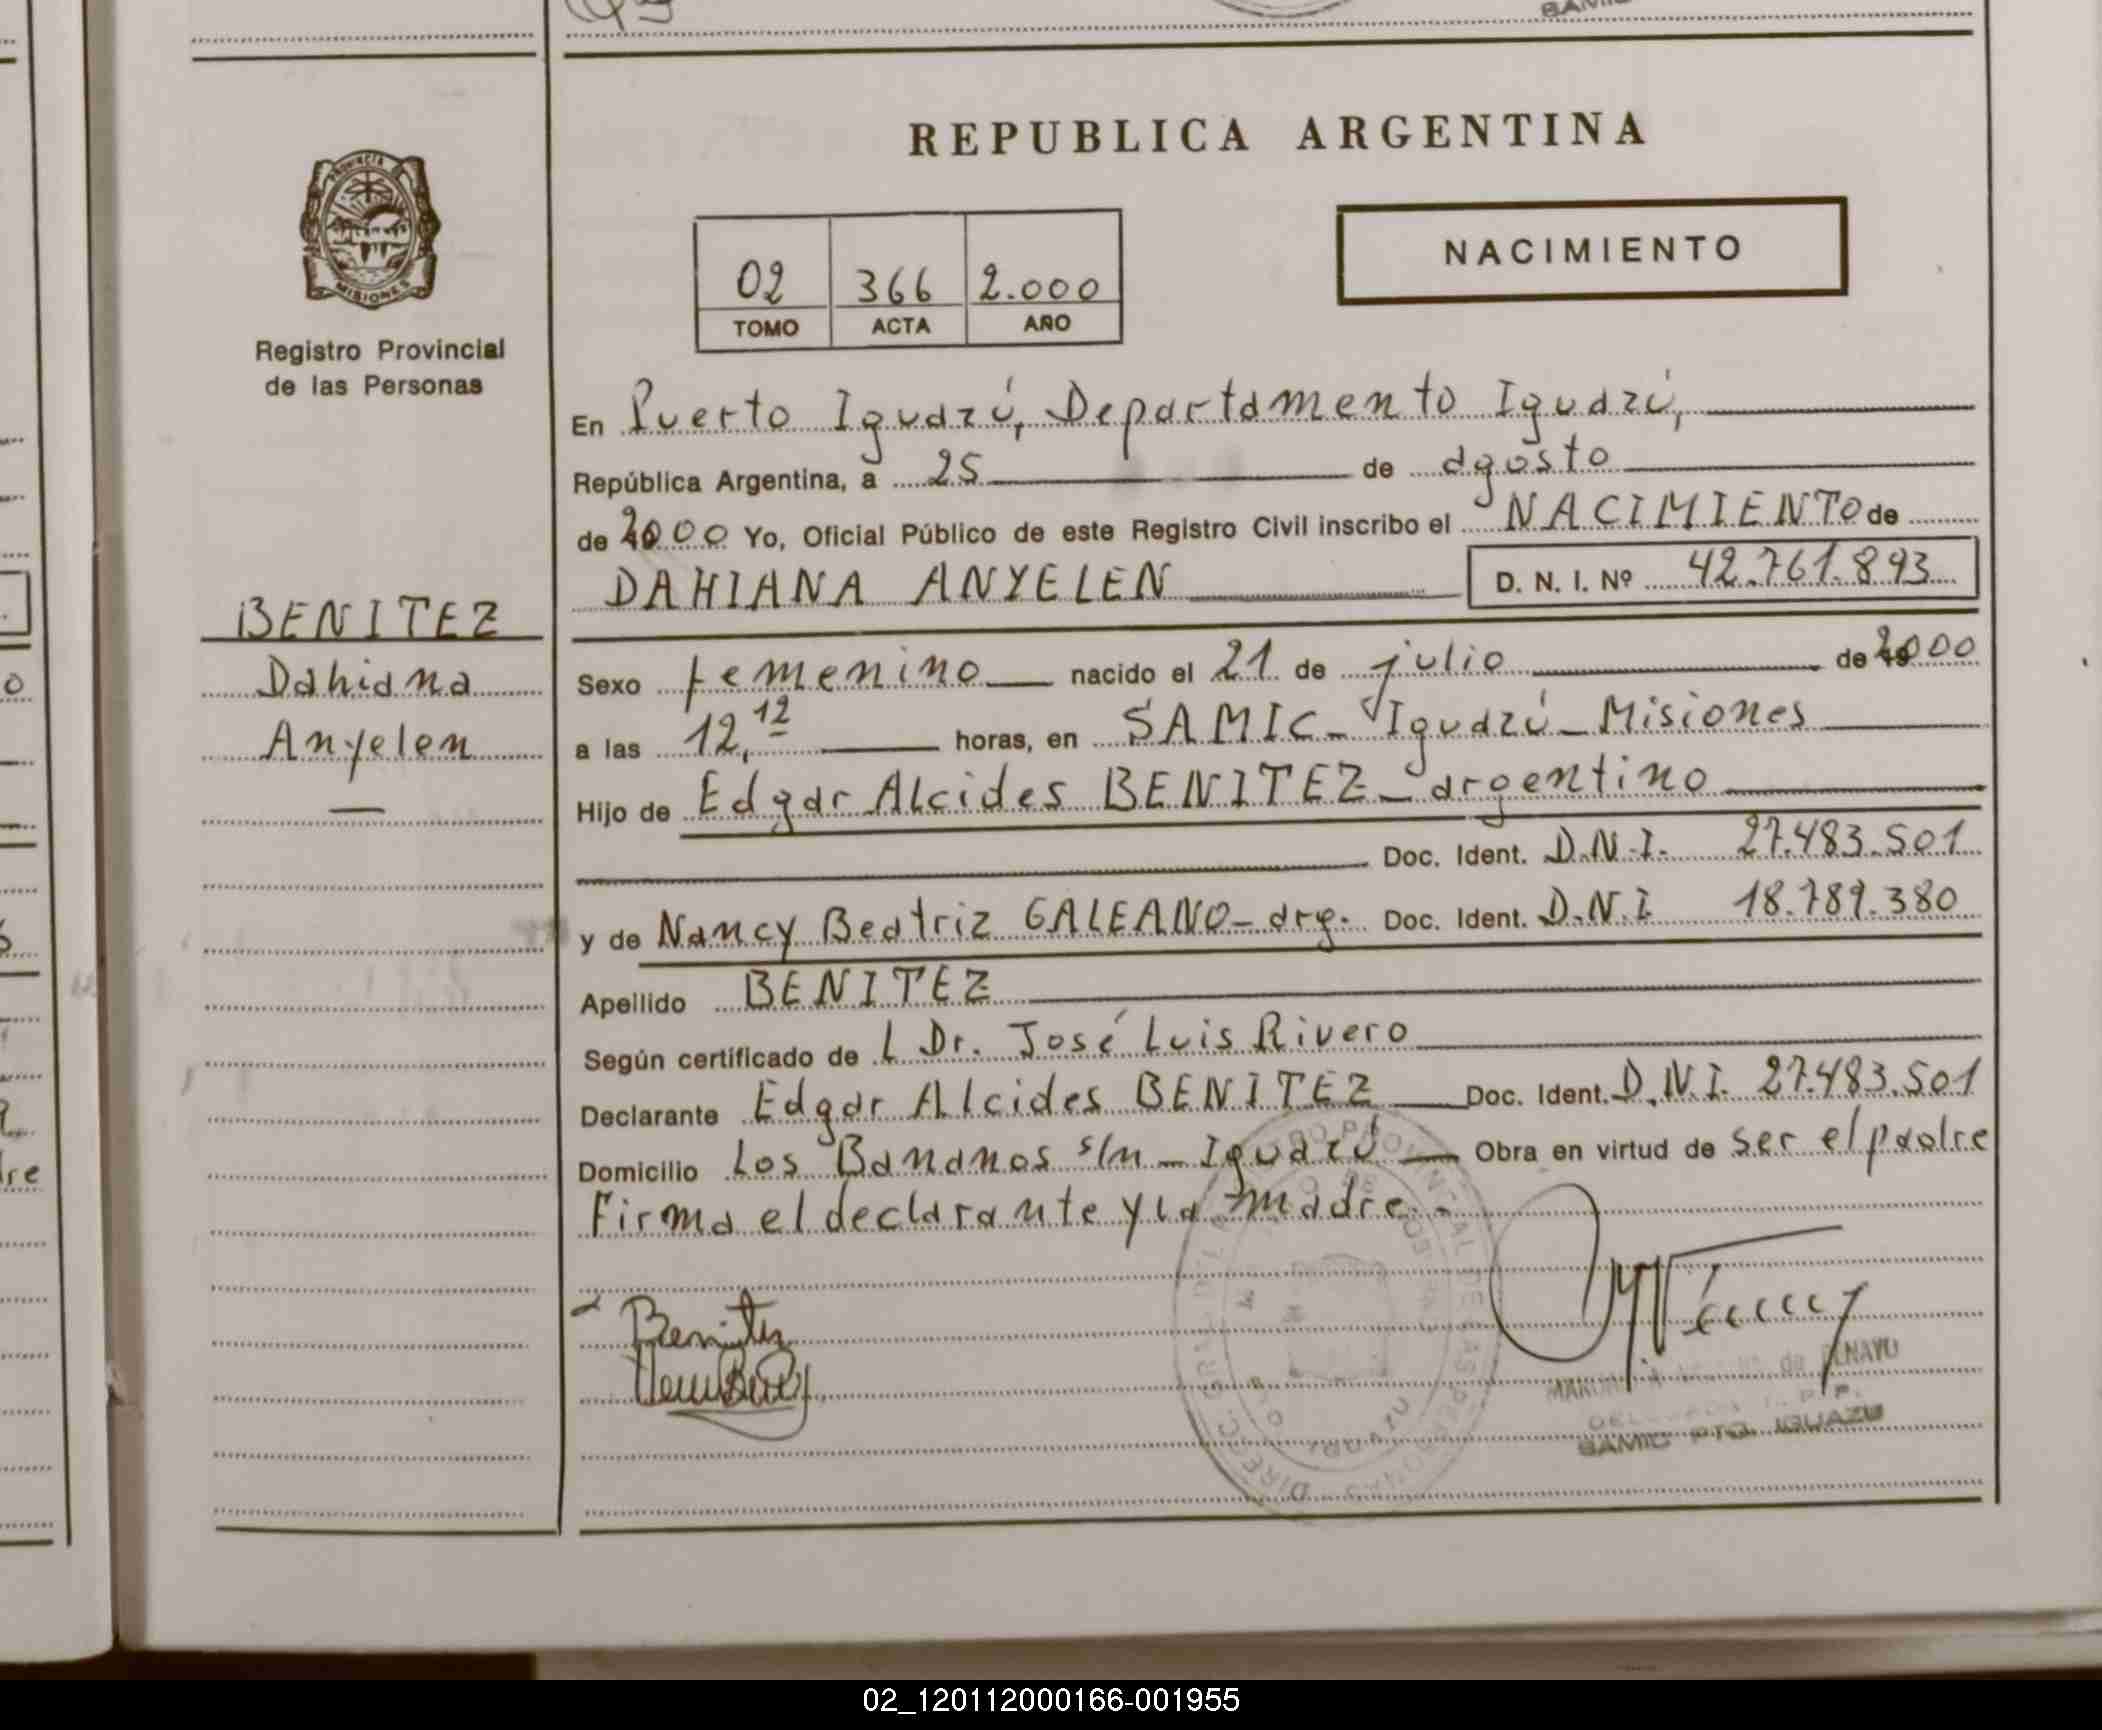 REPUBLICA ARGENTINA
NACIMIENTO
02 366 2.000
TOMO ACTA AÑO
PROVINCIA
MISIONES
Registro Provincial
de las Personas
BENITEZ
Dahiana
Anyelen
En Puerto Iguazú, Departamento Iguazú,
República Argentina, a 25 de agosto
de 2000 Yo, Oficial Público de este Registro Civil inscribo el NACIMIENTO de
DAHIANA ANYELEN D. N. I. Nº 42.761.893
Sexo femenino nacido el 21 de julio de 2000
a las 12,12 horas, en SAMIC - Iguazú - Misiones
Hijo de Edgar Alcides BENITEZ - argentino
Doc. Ident. D.N.I. 27.483.501
y de Nancy Beatriz GALEANO - arg. Doc. Ident. D.N.I 18.789.380
Apellido BENITEZ
Según certificado de l Dr. José Luis Rivero
Declarante Edgar Alcides BENITEZ Doc. Ident. D.N.I. 27.483.501
Domicilio Los Bananos s/n - Iguazú Obra en virtud de ser el padre
Firma el declarante y la madre.-
Benitez
de PENAYO
SAMIC PTO. IGUAZU
02_120112000166-001955